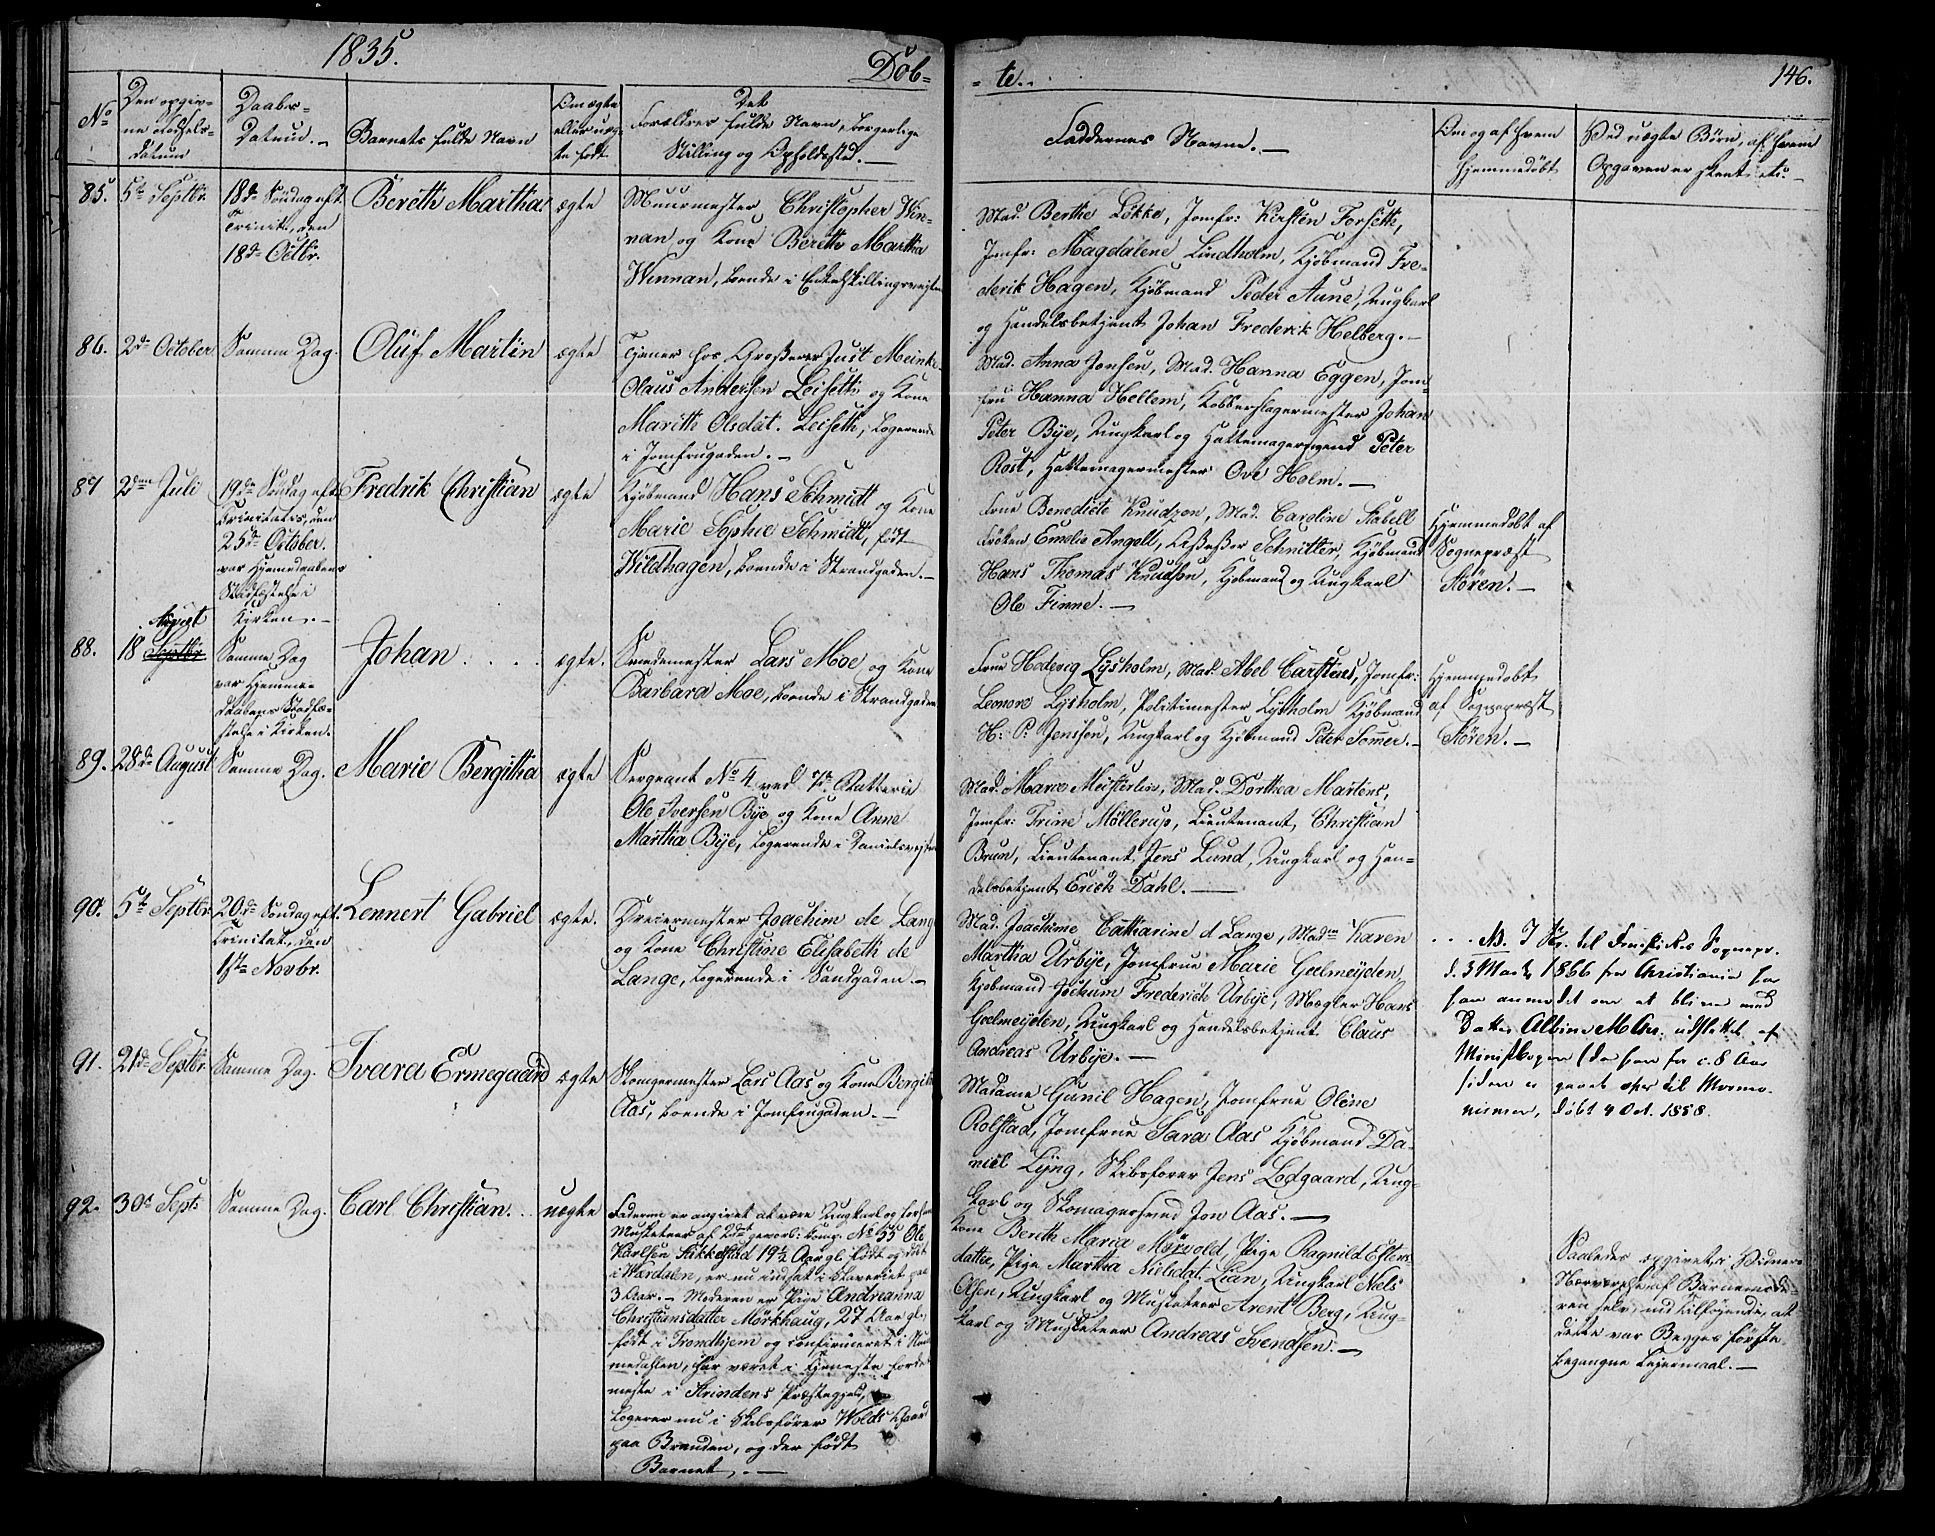 1835.
Döb-
- te. -
146.
No
Den opgiv-
ne Fødsels-
datum
Daabs-
Datum. -
Barnets fulde Navn
Om ægte
eller uæg-
te født
Det
Forældres fulde Navn, borgerlige
Stilling og Opholdssted. -
Faddernes Navne. -
Om og af hvem
Hjemmedøbt
Ved uægte Børn, af hvem
Opgaven er skeet etc. -
85.
5te Septbr.
18de Søndag eft.
Trinit., den
18de Octbr.
Bereth Martha
ægte
Muurmester Christopher Win-
nan og Kone Bereth Martha
Winnan, boende i Enkeltskillingsveiten
Mad. Berthe Løkke, Jomfr: Kirsten Forseth,
Jomfr: Magdalene Lindholm, Kjøbmand Fre-
derik Hagen, Kjøbmand Peder Aune, Ungkarl
og Handelsbetjent Johan Frederik Helberg. -
86.
2de October
Samme Dag.
Oluf Martin
ægte
Tjener hos Grosserer Just Meinke
Olaus Andersen Leiseth og Kone
Marith Olsdat. Leiseth, Logerende
i Jomfrugaden. -
Mad. Anna Jonsen, Mad. Hanna Eggen, Jom-
fru Hanna Hellem, Kobberslagermester Johan
Peter Bye, Ungkarl og Hattemagersvend Peter
Rost, Hattemagermester Ove Holm. -
87
2den Juli
19de Søndag eft.
Trinitatis, den
25de October.
var Hjemmedaabens
Stadfæstelse i
Kirken. -
Fredrik Christian
ægte
Kjøbmand Hans Schmidt og Kone
Marie Sophie Schmidt, født
Wildhagen, boende i Strandgaden. -
Frue Benedicte Knudzon, Mad. Caroline Stabell
Frøken Emelie Angell, Assessor Schnitler, Kjøbmand
Hans Thomas Knudson, Kjøbmand og Ungkarl
Ole Finne. -
Hjemmedøbt af
Sognepræst
Stören. -
88.
August
18 Septbr.
Samme Dag
var Hjemme-
daabens Stadfæ-
stelse i Kirken.
Johan . . . .
ægte.
Smedemester Lars Moe og Kone
Barbara Moe, boende i Strandgaden
Frue Hedevig Lysholm, Mad. Abel Carstens, Jomfr:
Leonore Lysholm, Politimester Lysholm Kjøbmand
H: P: Jenssen, Ungkarl og Kjøbmand Peter Sommer. -
Hjemmedøbt
af Sognepræst
Stören. -
89.
28de August
Samme Dag.
Marie Bergitha
ægte
Sergeant No 4 ved Batterie
Ole Iversen Bye og Kone Anne
Martha Bye, Logerende i Danielsveiten
Mad. Marie Meisterlin, Mad. Dorthea Martens,
Jomfr: Trine Möllerup, Lieutenant, Christian
Brun, Lieutenant Jens Lund, Ungkarl og Han-
delsbetjent Erich Dahl. -
90.
5te Septbr.
20de Søndag eft.
Trinitat., den
1ste Novbr.
Lennert Gabriel
ægte.
Dreiermester Joachim de Lange
og Kone Christine Elisabeth de
Lange, Logerende i Sandgaden. -
Mad. Joachime Catharine d Lange, Madm Karen
Martha Urbye, Jomfrue Marie Geelmeyden,
Kjøbmand Jochum Frederich Urbye, Mægler Hans
Geelmeyden, Ungkarl og Handelsbetjent Claus
Andreas Urbye. -
. . . NB. I til Sognepr.
d. 3 Marts 1866 fra Christiania har
han anmodet om at blive med
Datter Albine M udslettet af
Ministbogen (da han for c. 8 Aar
siden er gaaet over til Mormo-
nismen, døbt 4 Oct. 1858.
91.
21de Septbr.
Samme Dag.
Ivara Ermegaard
ægte
Skomagermester Lars Aas og Kone Bergith
Aas, boende i Jomfrugaden. -
Madame Gunil Hagen, Jomfrue Oline
Rolstad, Jomfrue Sara Aas Kjøbmand Da-
niel Lyng, Skibsfører Jens Lodgaard, Ung-
karl og Skomagersvend Jon Aas. -
92.
30te Septb
Samme Dag.
Carl Christian. .
uægte
Faderen er angivet at være Ungkarl og forhen
Musketeer af 2det geworb: Comp. No 55 Ole
Karlsen Stikkelstad 19½ Aar gl. født og døbt
i Værdalen, er nu indsat i Slaveriet paa
3 Aar. - Moderen er Pige Andreanna
Christiansdatter Mörkhaug, 27 Aar gl.
født i Trondhjem og Confirmeret i Stør-
medahlen, har været i Tjeneste forde
meste i Strindens Præstegjeld,
Logerer nu i Skibsfører Wolds Gaard
paa Branden, og der født
Barnet. -
Kone Bereth Maria Mörvold, Pige Ragnild Estens
datter, Pige Martha Nielsdat. Lian, Ungkarl Niels
Olsen, Ungkarl og Musketeer Arent Berg, Ung-
karl og Musketeer Andreas Svendsen. -
Saaledes opgivet i Vidners
Nærværelse af Barnemode-
ren selv, med tilføiende, at
dette var Begges første
begangne Leiermaal. -